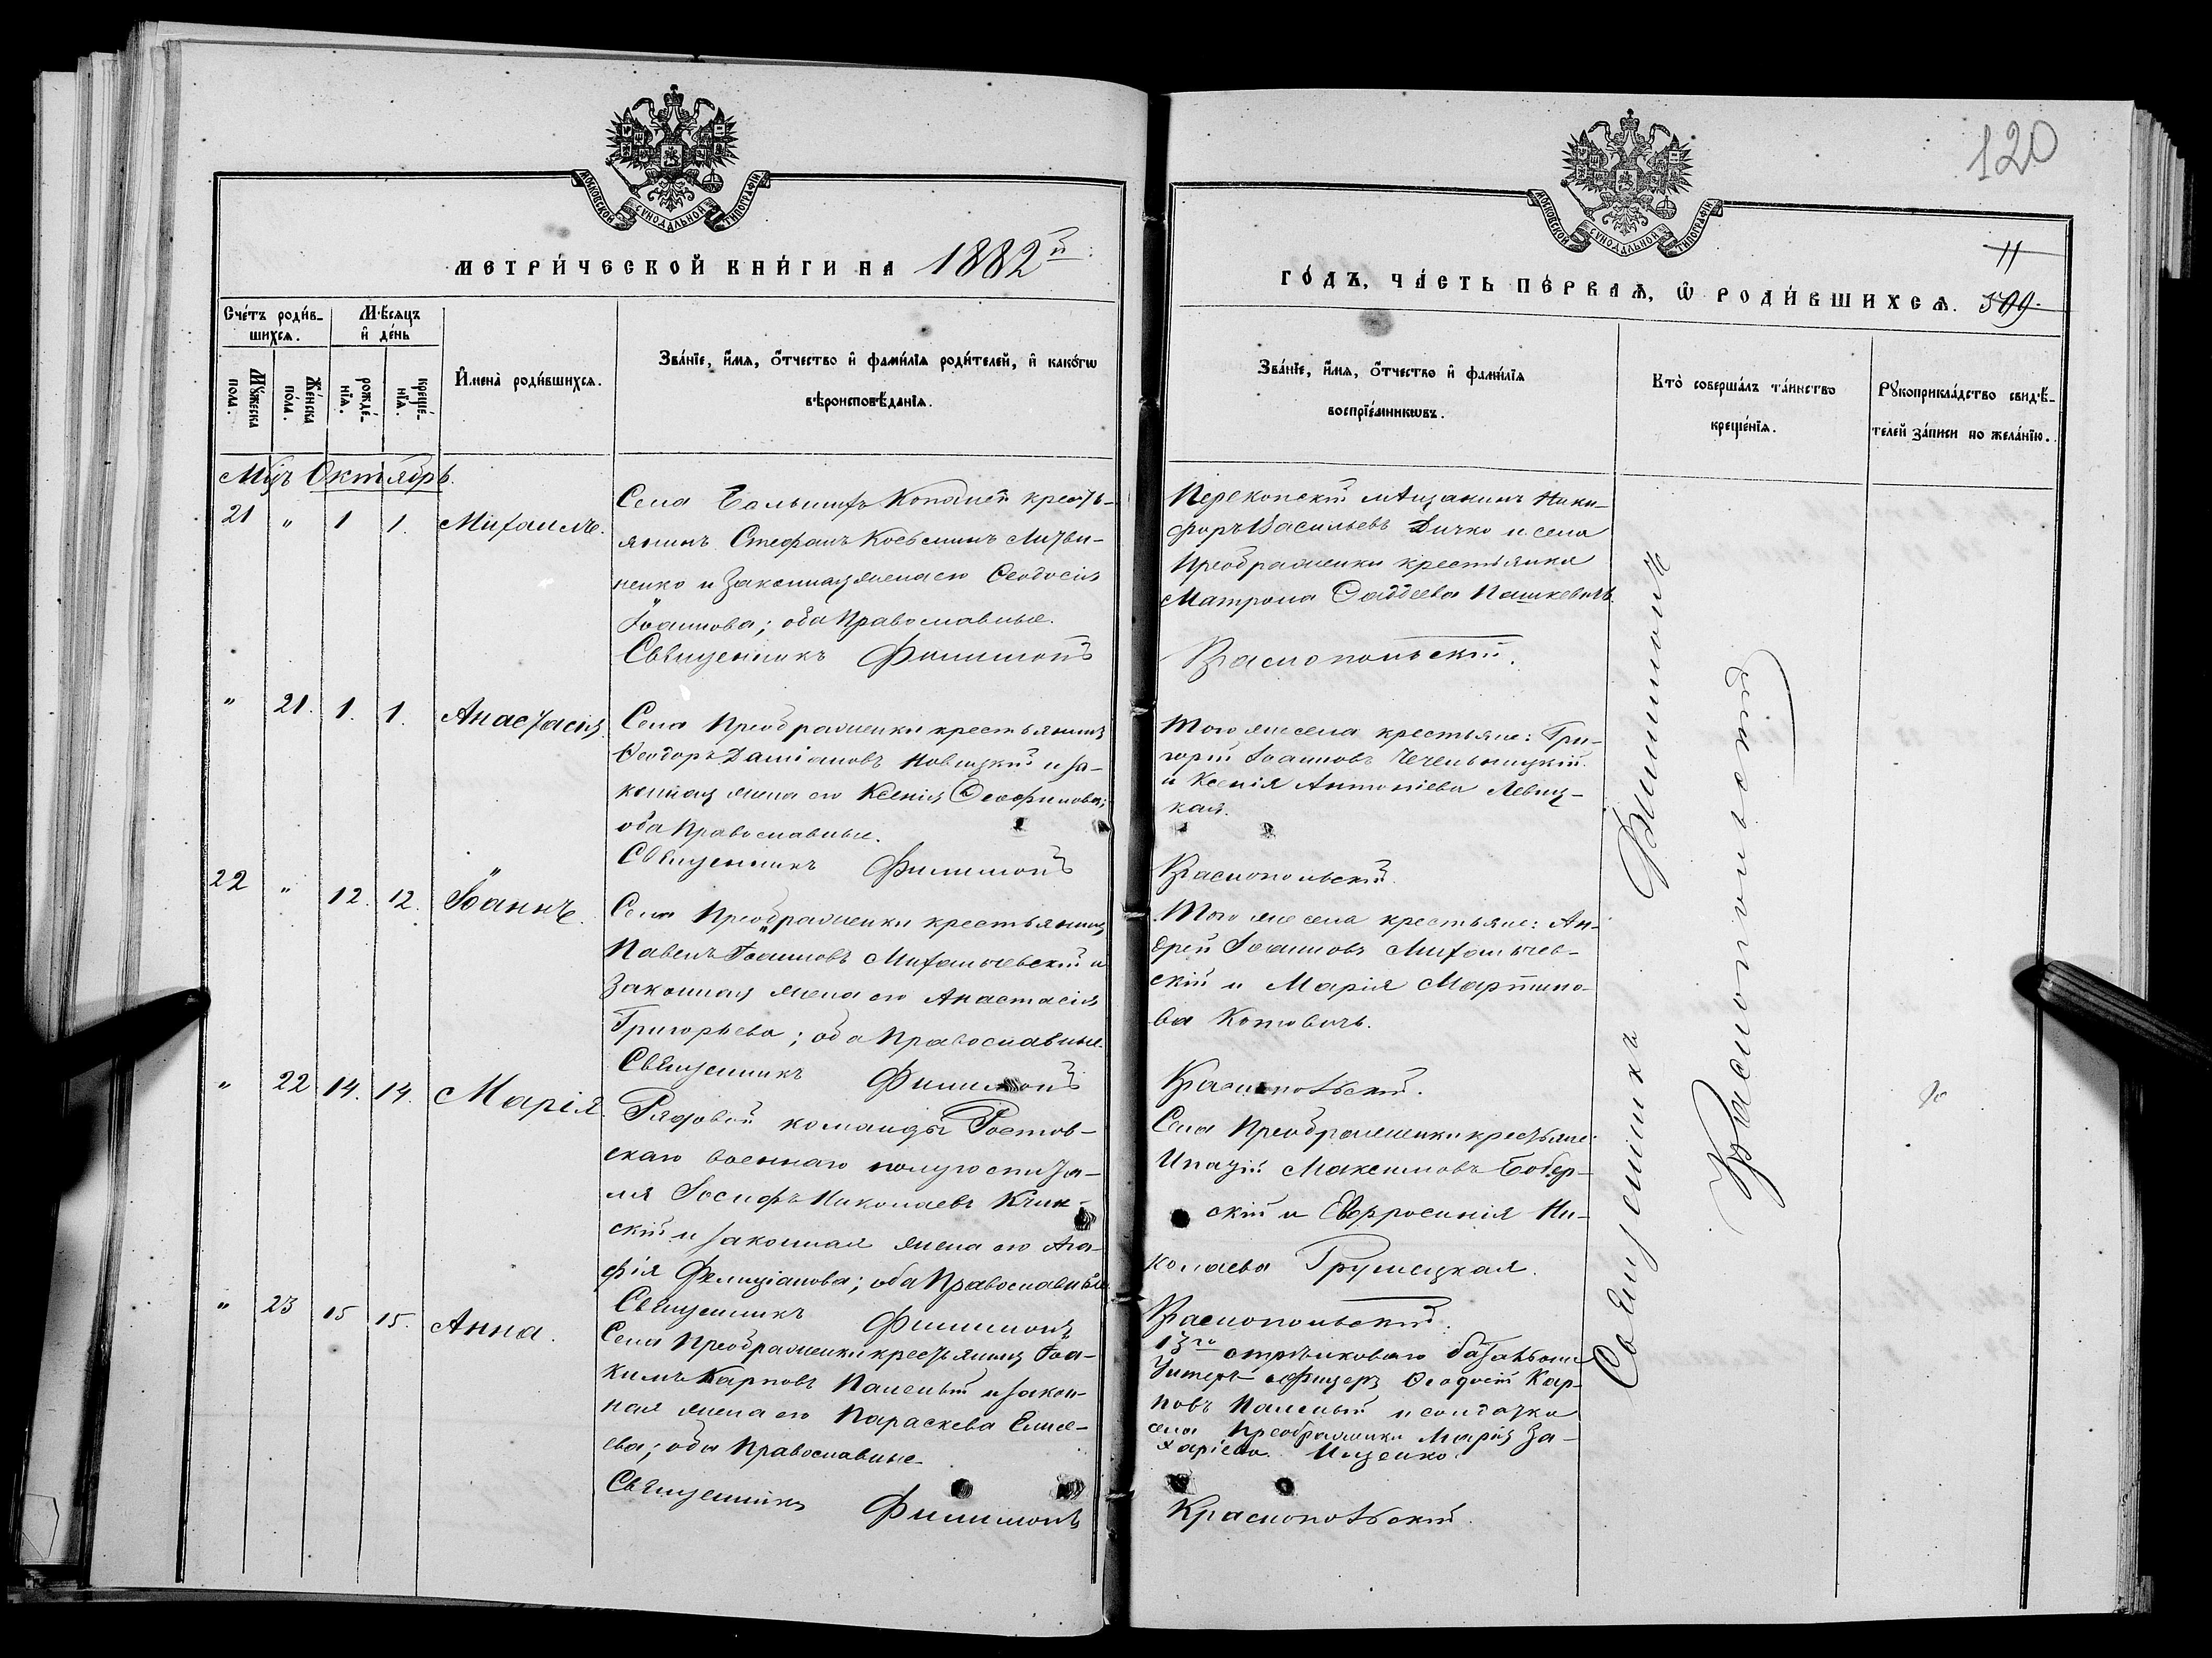 120
МОСКОВСКОЙ СѴНОДАЛЬНОЙ ТИПОГРАФІИ
МОСКОВСКОЙ СѴНОДАЛЬНОЙ ТИПОГРАФІИ
МЕТРИ́ЧЕСКОЙ КНИ́ГИ НА 1882й
ГО́ДЪ, ЧА́СТЬ ПЕ́РВАѦ, Ѡ҆ РОДИ́ВШИХСѦ.
11
509
Сче́тъ роди́в-
шихсѧ.
Мꙋ́жеска
пола.
Же́нска
по́ла.
Мѣ́сѧцъ
и҆ де́нь
рожде́-
нїѧ.
креще́-
нїѧ.
И҆мена̀ роди́вшихсѧ.
Зва́нїе, и҆́мѧ, ѻ҆́тчество и҆ фами́лїѧ роди́телей, и҆ како́гѡ
вѣроисповѣ́данїѧ.
Зва́нїе, и҆́мѧ, ѻ҆́тчество и҆ фами́лїѧ
воспрїе́мникѡвъ.
Кто̀ соверша́лъ та́инство
креще́нїѧ.
Рꙋкоприкла́дство свидѣ́-
телей за́писи по жела́нїю.
Мцъ Октябрь.
21 " 1 1. Михаилъ.
Села Копаней кресть-
янинъ Стефанъ Косьминъ Литви-
ненко и законная жена его Ѳеодосія
Іоаннова; оба Православные.
Священникъ Филимонъ
Перекопскій мѣщанинъ Ники-
форъ Васильевъ Дичко и села
Преображенки крестьянка
Матрона Ѳаддеева Пашкевичъ.
Краснопольскій.
" 21. 1. 1. Анастасія
Села Преображенки крестьянинъ
Ѳеодоръ Даміановъ Новицкій и за-
конная жена его Ксенія Ѳеофилова;
оба Православные.
Священникъ Филимонъ
Того же села крестьяне: Гри-
горій Іоанновъ Чечельницкій
и Ксенія Антоніева Левиц-
кая.
Краснопольскій.
22 " 12. 12. Іоаннъ.
Села Преображенки крестьянинъ
Павелъ Іоанновъ Михальчевскій и
законная жена его Анастасія
Григорьева; оба Православные.
Священникъ Филимонъ
Того же села крестьяне: Ан-
дрей Іоанновъ Михальчев-
скій и Марія Мартино-
ва Котовичъ.
Краснопольскій.
" 22 14. 14. Марія.
Рядовой команды Ростов-
скаго военнаго полугоспита-
ля Іосифъ Николаевъ
скій и законная жена его Ага-
фія Фелиціанова; оба Православные
Священникъ Филимонъ
Села Преображенки крестьяне:
Ипатій Максимовъ Бобер-
скій и Евфросинія Ни-
колаева Грушецкая.
Краснопольскій.
" 23 15 15. Анна.
Села Преображенки крестьянинъ Іоа-
кимъ Карповъ Паленый и закон-
ная жена его Параскева Елисе-
ева; оба Православные
Священникъ Филимонъ
13го стрѣлковаго баталіона
Унтеръ-офицеръ Ѳеодосій Кар-
повъ Паленый и солдатка
села Преображенки Марія За-
харіева Ищенко.
Краснопольскій.
Священникъ Филимонъ
Краснопольскій